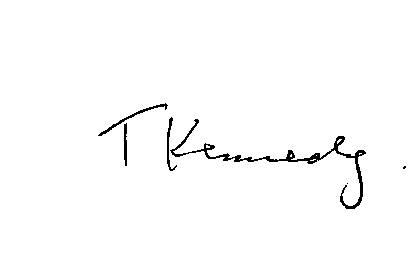 T Kennedy